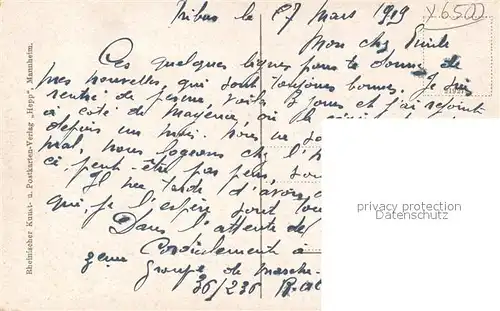 le 27 mars 1919
X6502
Mon cher Emile
Ces quelques lignes pour te donner de
mes nouvelles, qui sont toujours bonnes. Je suis
rentré de perme, voilà 3 jours et j'ai rejoint
à coté de Mayence, où le
depuis un mois. nous ne
mal, nous logeons chez l'h
ci, peut-être pas pens,
Il me tarde d'avoir
qui, je l'espère sont tou
Dans l'attente de
Cordialement à
3eme
Groupe de marche
36/236 R.at
Rheinischer Kunst- u. Postkarten-Verlag „Hepp", Mannheim.
privacy protection
Datenschutz